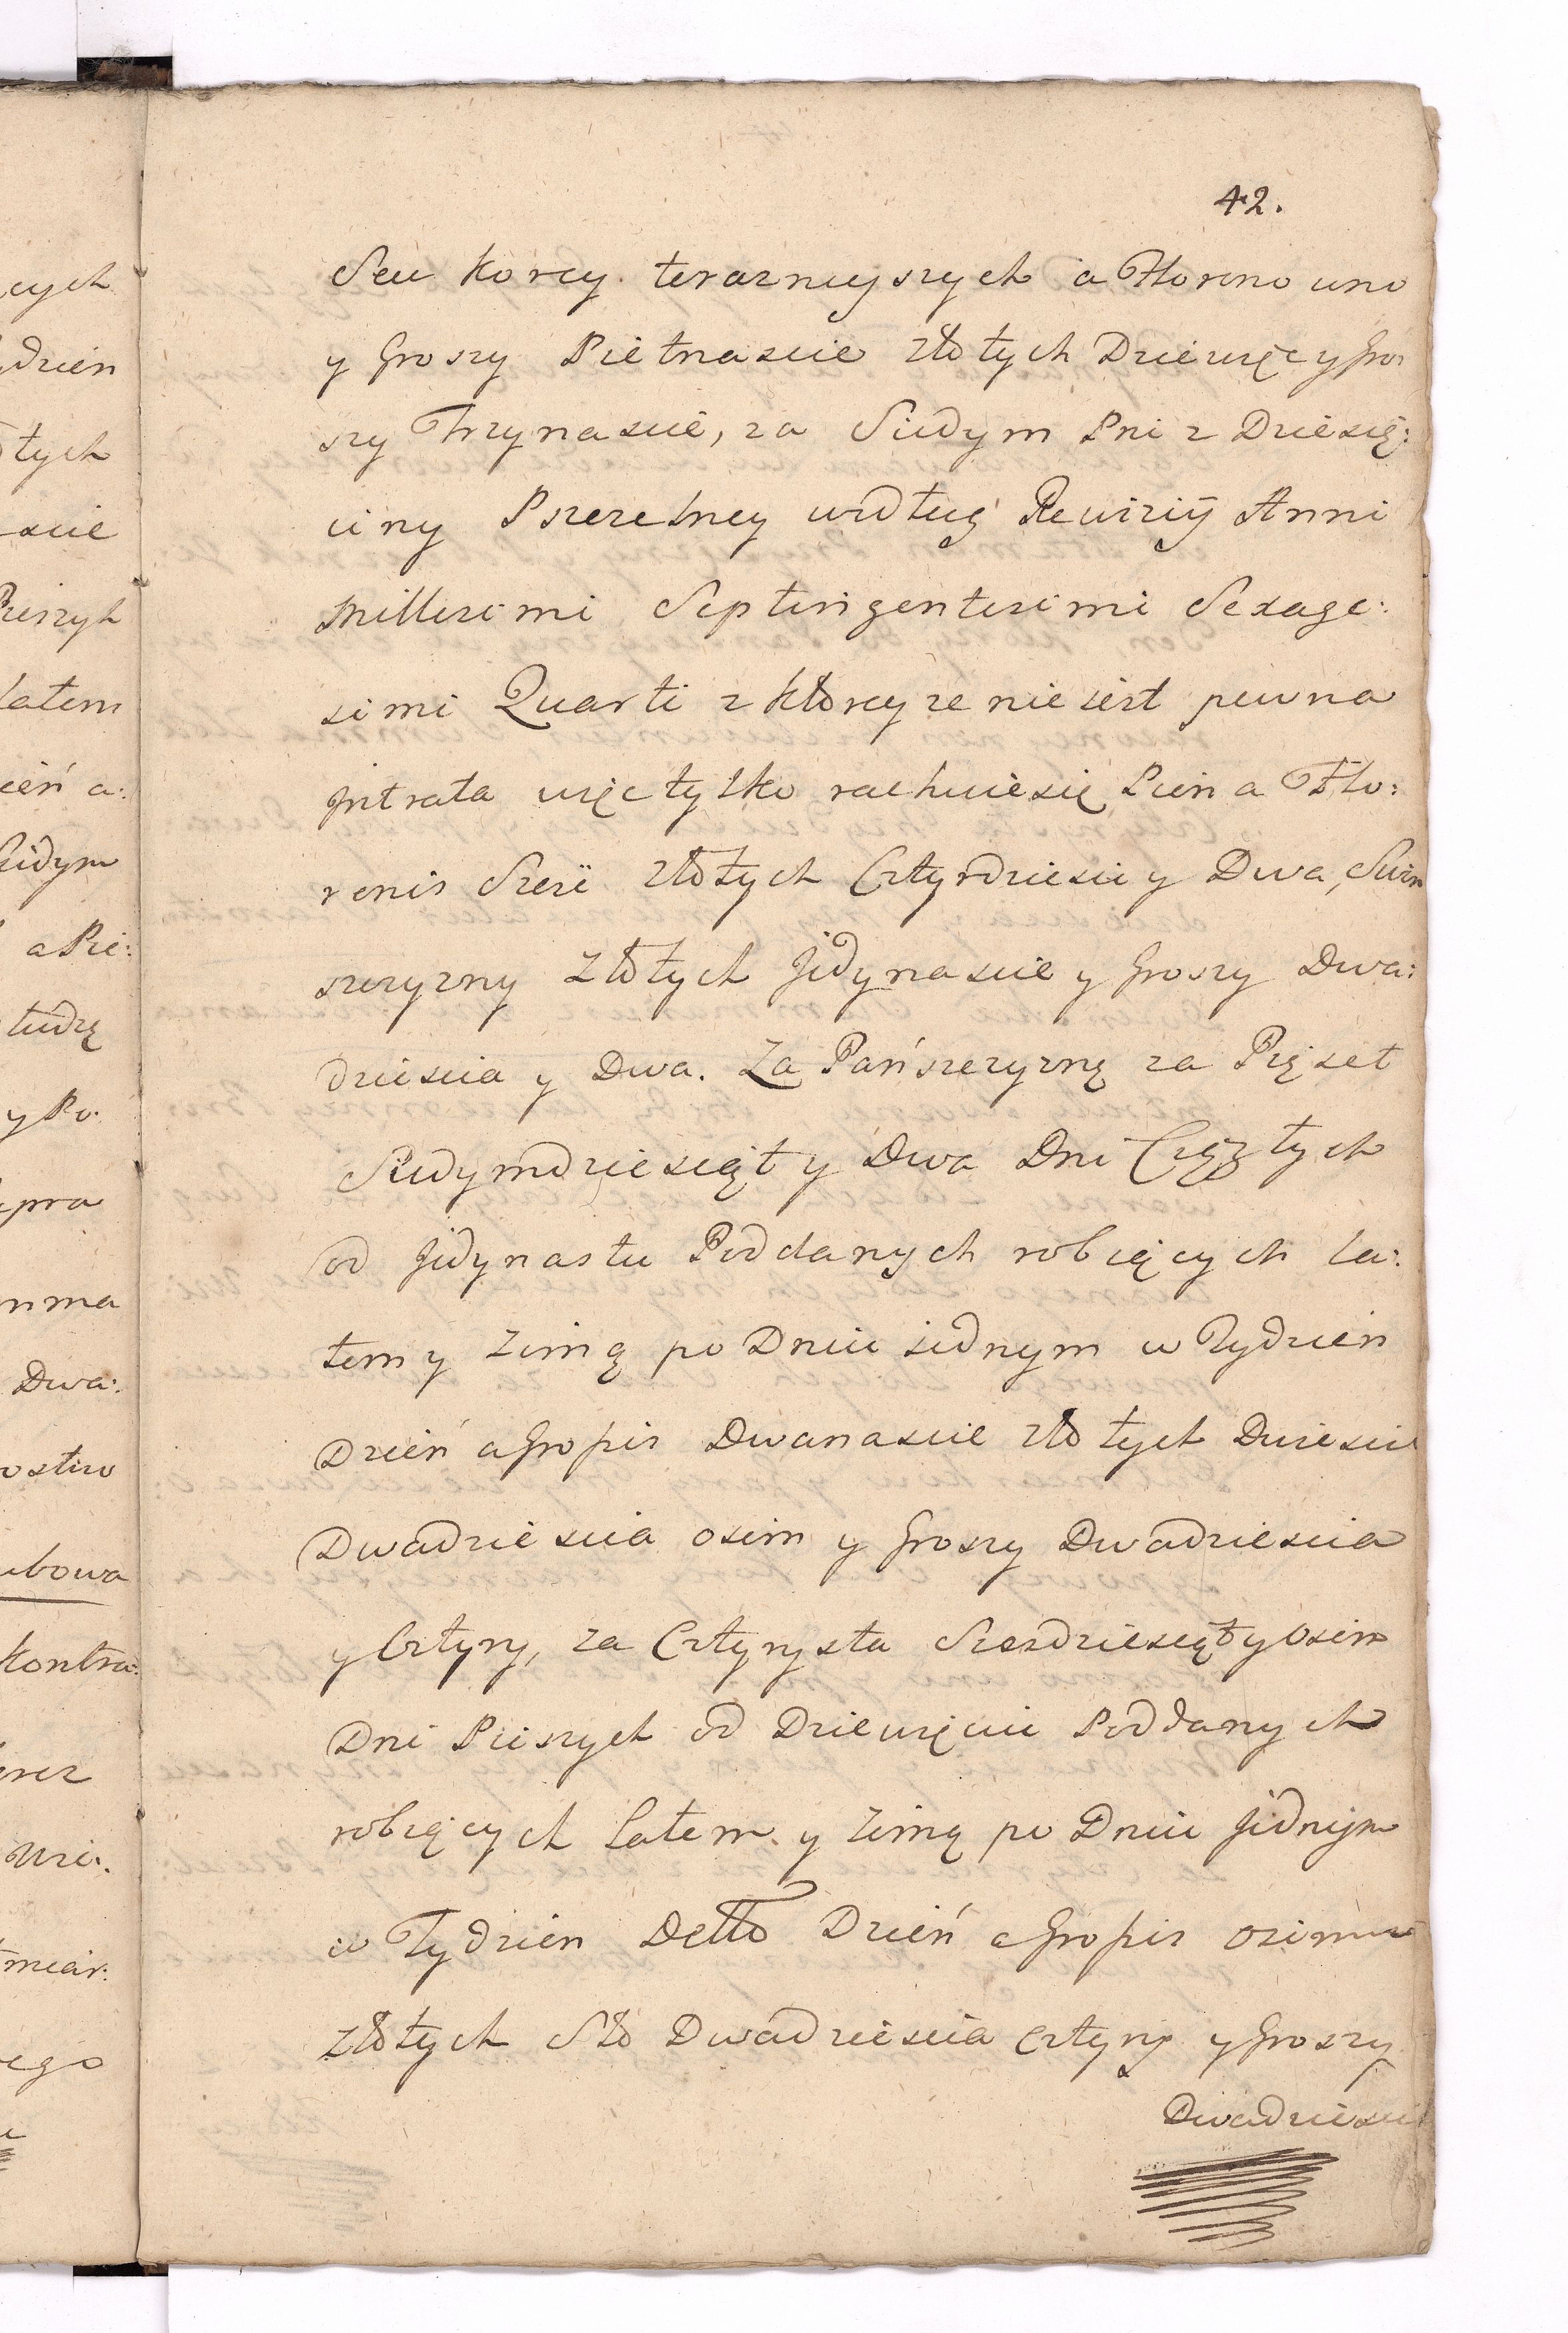 42.
Seu Korcy teraznieyszych a Floreno uno
y Groszy Pietnascie Złotych Dziewięć y Gro:
szy Trzynascie, za Siedym Pni z Dziesię:
ciny Pszczelney według Rewizij Anni
Millesimi Septingentesimi Sexage:
simi Quarti z którey ze nie iest pewna
Jntrata więc tylko rachuie się Pień a Flo:
renis Sześć Złotych Czterdziesci y Dwa, Swin
szczyzny Złotych Jedynascie y Groszy Dwa:
dziescia y Dwa. Za Pańszczyznę za Pięset
Siedymdziesiąt y Dwa Dni Ciągłych
od Jedynastu Poddanych robiących la:
tem y Zimą po Dniu iednym w Tydzień
Dzień a Grossis Dwanascie Złotych Dwiescie
Dwadziescia osim y Groszy Dwadziescia
y Cztyry, za Cztyrysta Szesdziesiąt y Osim
Dni Pieszych od Dziewięciu Poddanych
robiących Latem y Zimą po Dniu Jednym
w Tydzien Detto Dzień a Grossis osimiu
Złotych Sto Dwadziescia Cztyry y Groszy
Dwadziescia
cych
dzien
tych
scie
Pieszych
latem
zień a:
Siedym
a Pie:
ludzę
y Po:
pra
nma
Dwa:
ostwo
ubowa
Kontra:
rzez
Wzi:
miar:
ego